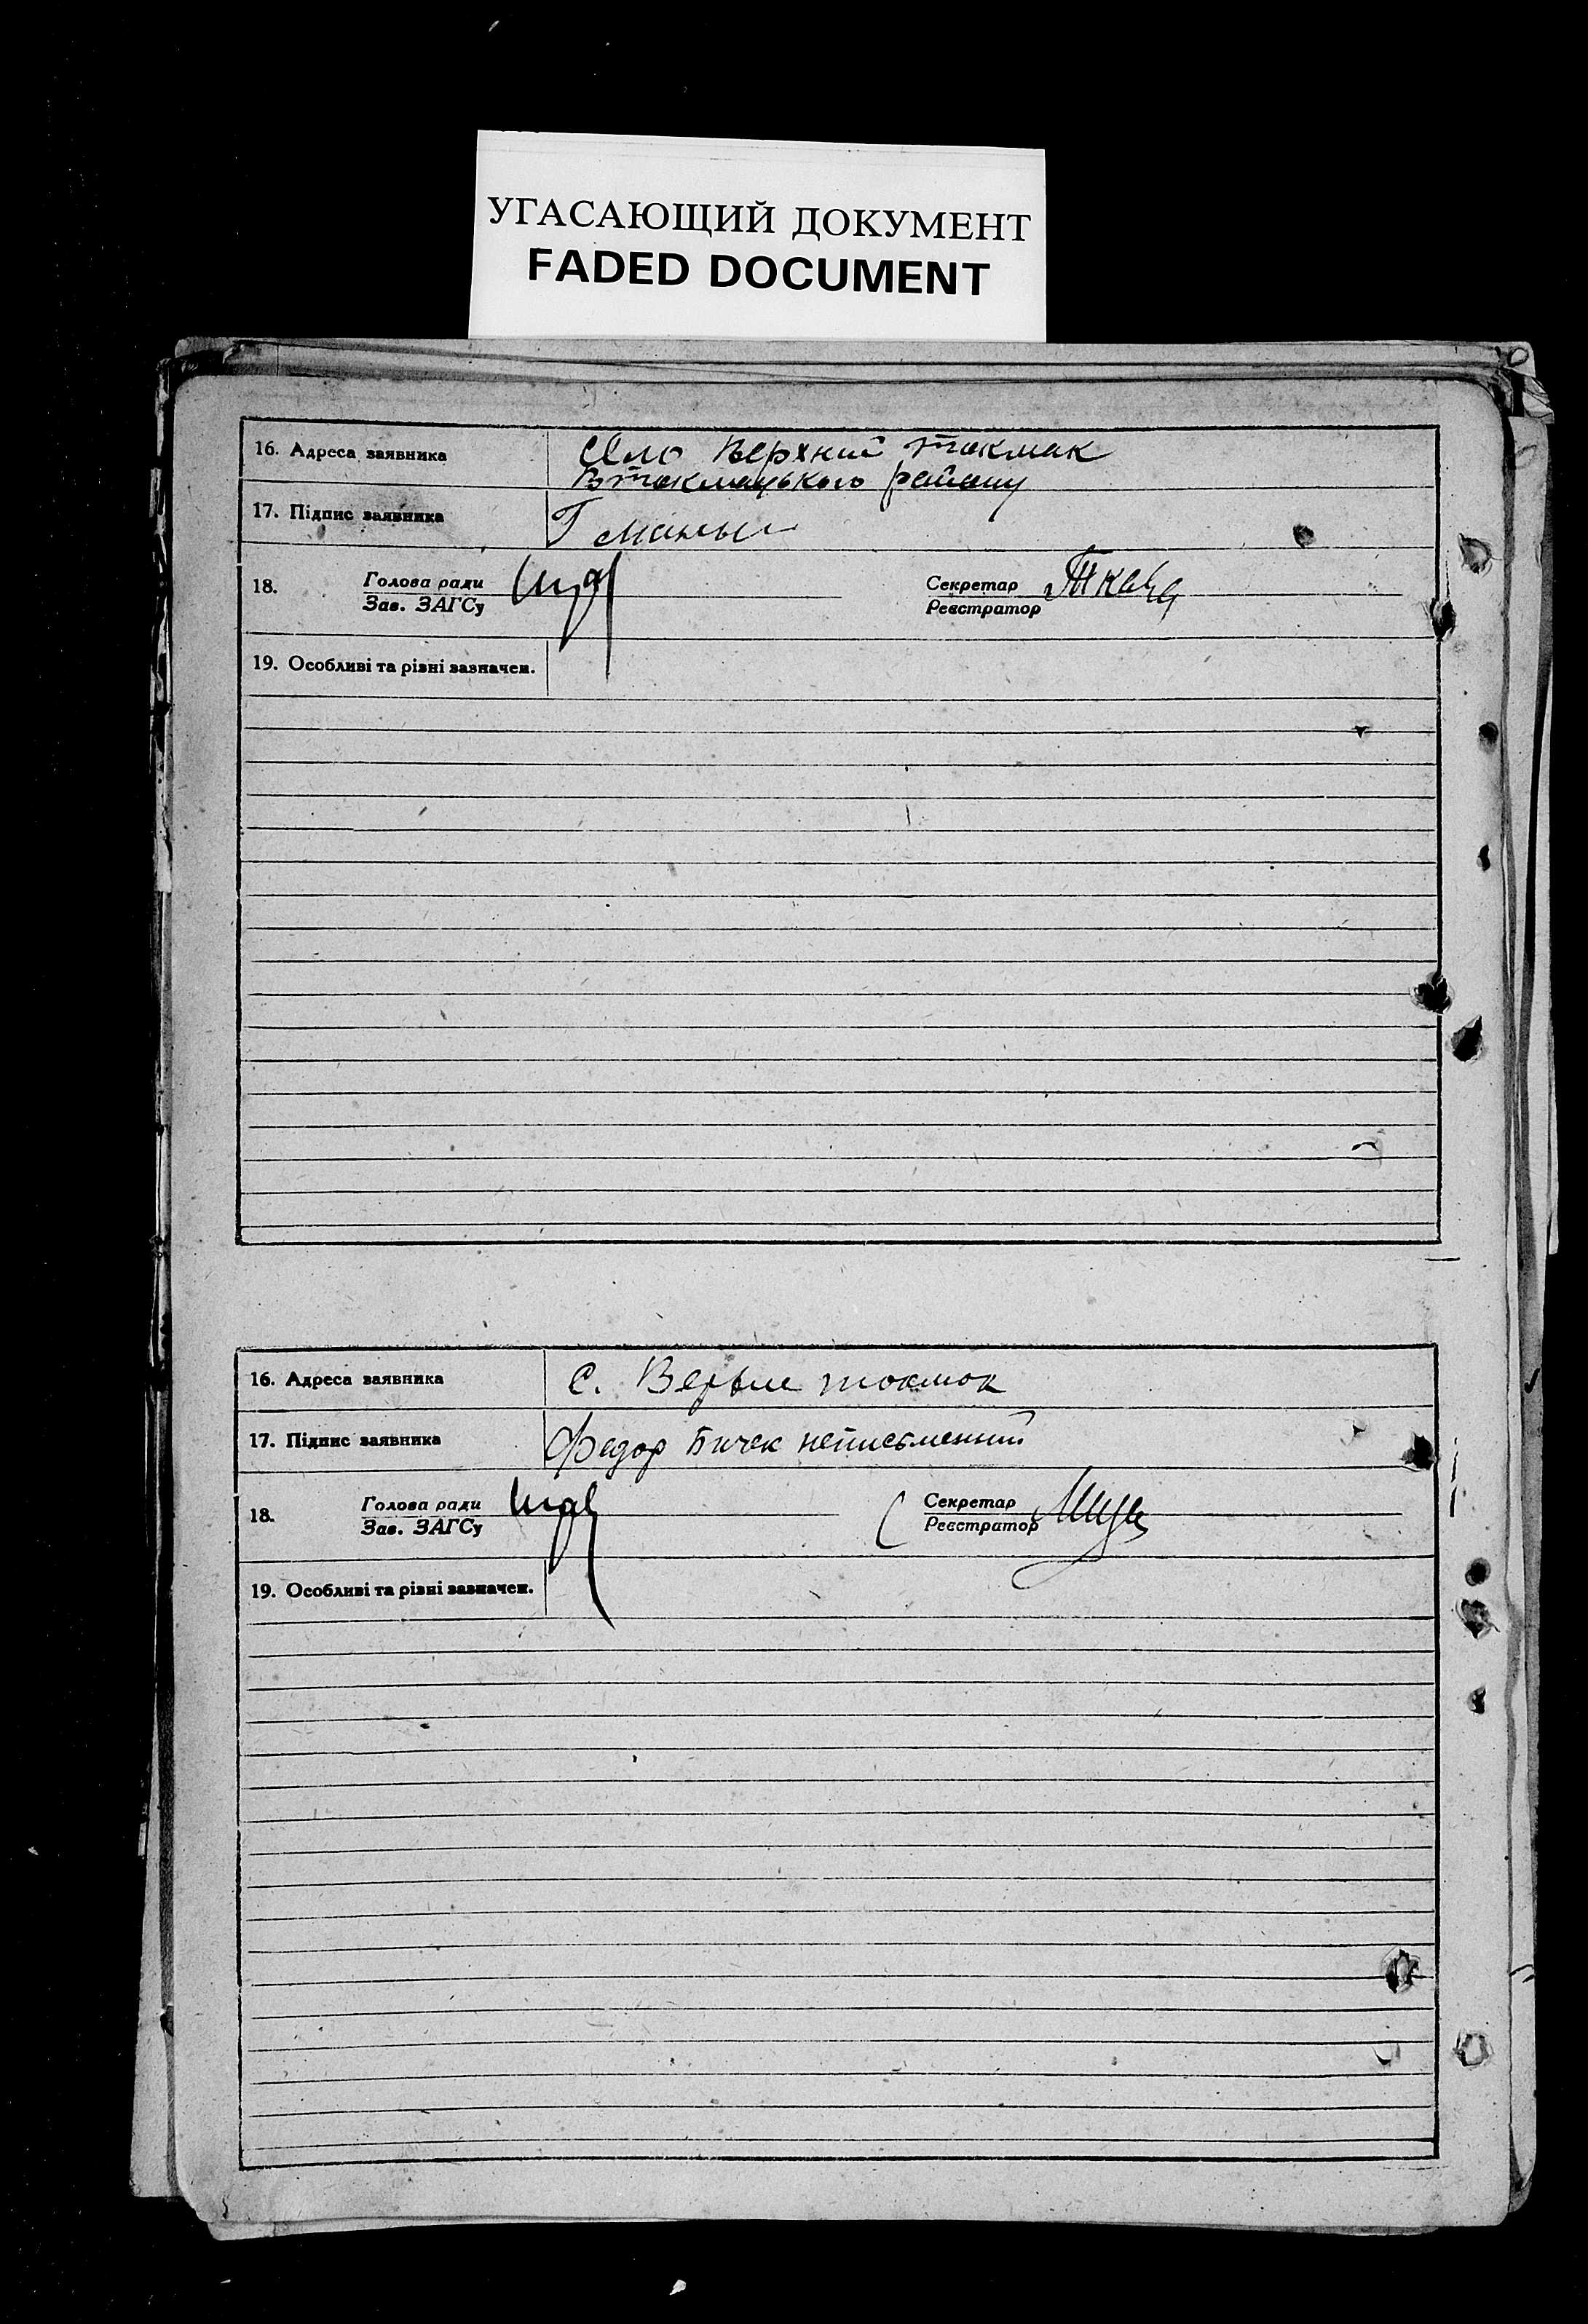 УГАСАЮЩИЙ ДОКУМЕНТ
FADED DOCUMENT
16. Адреса заявника Село Верхний токмак
Втокмацького району
17. Підпис заявника Г
18. Голова ради Секретар Ткач
Зав. ЗАГСу Реєстратор
19. Особливі та різні зазначен.
16. Адреса заявника с. токмок
17. Підпис заявника Федор Бичек неписьменний
18. Голова ради Секретар
Зав. ЗАГСу Реєстратор
19. Особливі та різні зазначен.